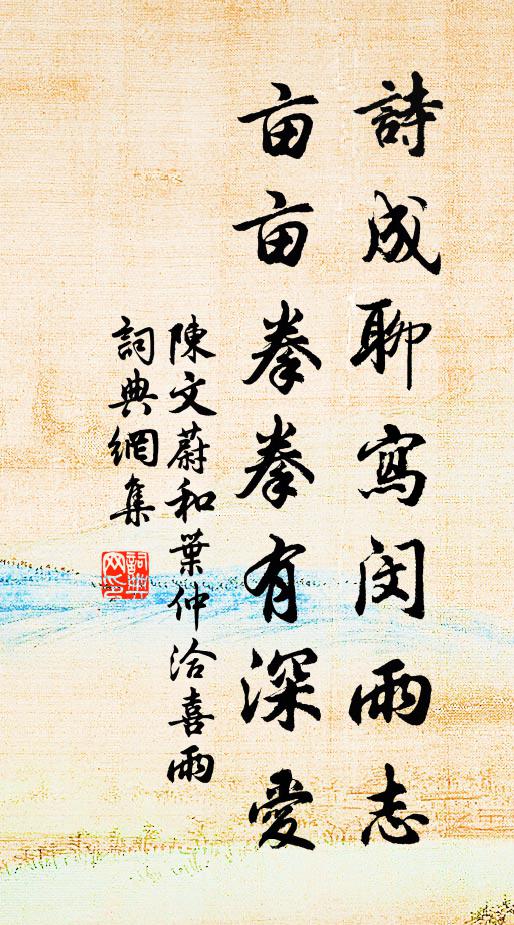 詩成聊寫閔雨志
亩亩拳拳有深愛
陳文蔚和葉仲洽喜雨
詞典網集